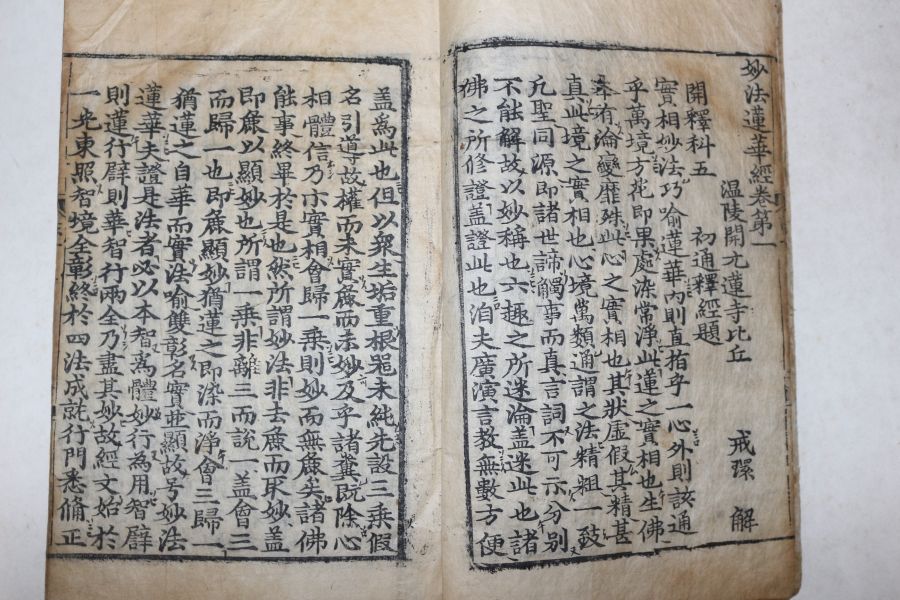 妙法蓮華經卷第一
温陵開元蓮寺比丘 戒環 解
開釋科五 初通釋經題
實相妙法巧喻蓮華內則直指乎一心外則該通
乎萬境方花即果處染常淨此蓮之實相也生佛
本有淪變靡殊此心之實相也其狀虛假其精甚
真此境之實相也心境萬類通謂之法精粗一致
凡聖同源即諸世諦觸事而真言詞不可示分別
不能解故以妙稱也六趣之所迷淪盖迷此也諸
佛之所修證盖證此也洎夫廣演言教無數方便
盖爲此也但以衆生垢重根器未純先設三乘假
名引導故權而未實麁而未妙及乎諸糞既除心
相體信乃示實相會歸一乘則妙而無麁矣諸佛
能事終畢於是也然所謂妙法非去麁而取妙盖
即麁以顯妙也所謂一乘非離三而說一盖會三
而歸一也即麁顯妙猶蓮之即染而淨會三歸一
猶蓮之自華而實法喻雙彰名實並顯故号妙法
蓮華夫證是法者必以本智爲體妙行為用智譬
則蓮行譬則華智行兩全乃盡其妙故經文始於
一光東照智境全彰終於四法成就行門悉備正